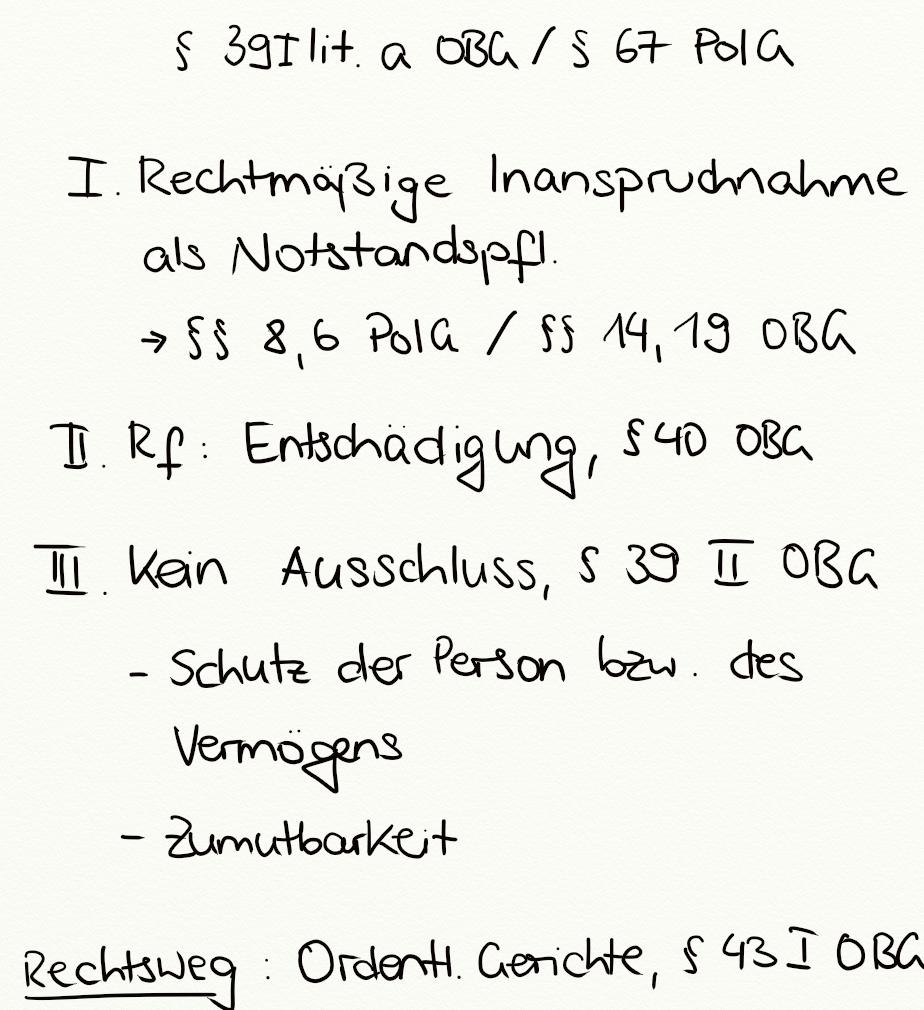 § 39 I lit. a OBG / § 67 PolG
I. Rechtmäßige Inanspruchnahme
als Notstandspfl.
→ §§ 8,6 PolG / §§ 14, 19 OBG
II. Rf: Entschädigung, § 40 OBG
III. Kein Ausschluss, § 39 II OBG
- Schutz der Person bzw. des
Vermögens
- Zumutbarkeit
Rechtsweg: Ordentl. Gerichte, § 43 I OBG